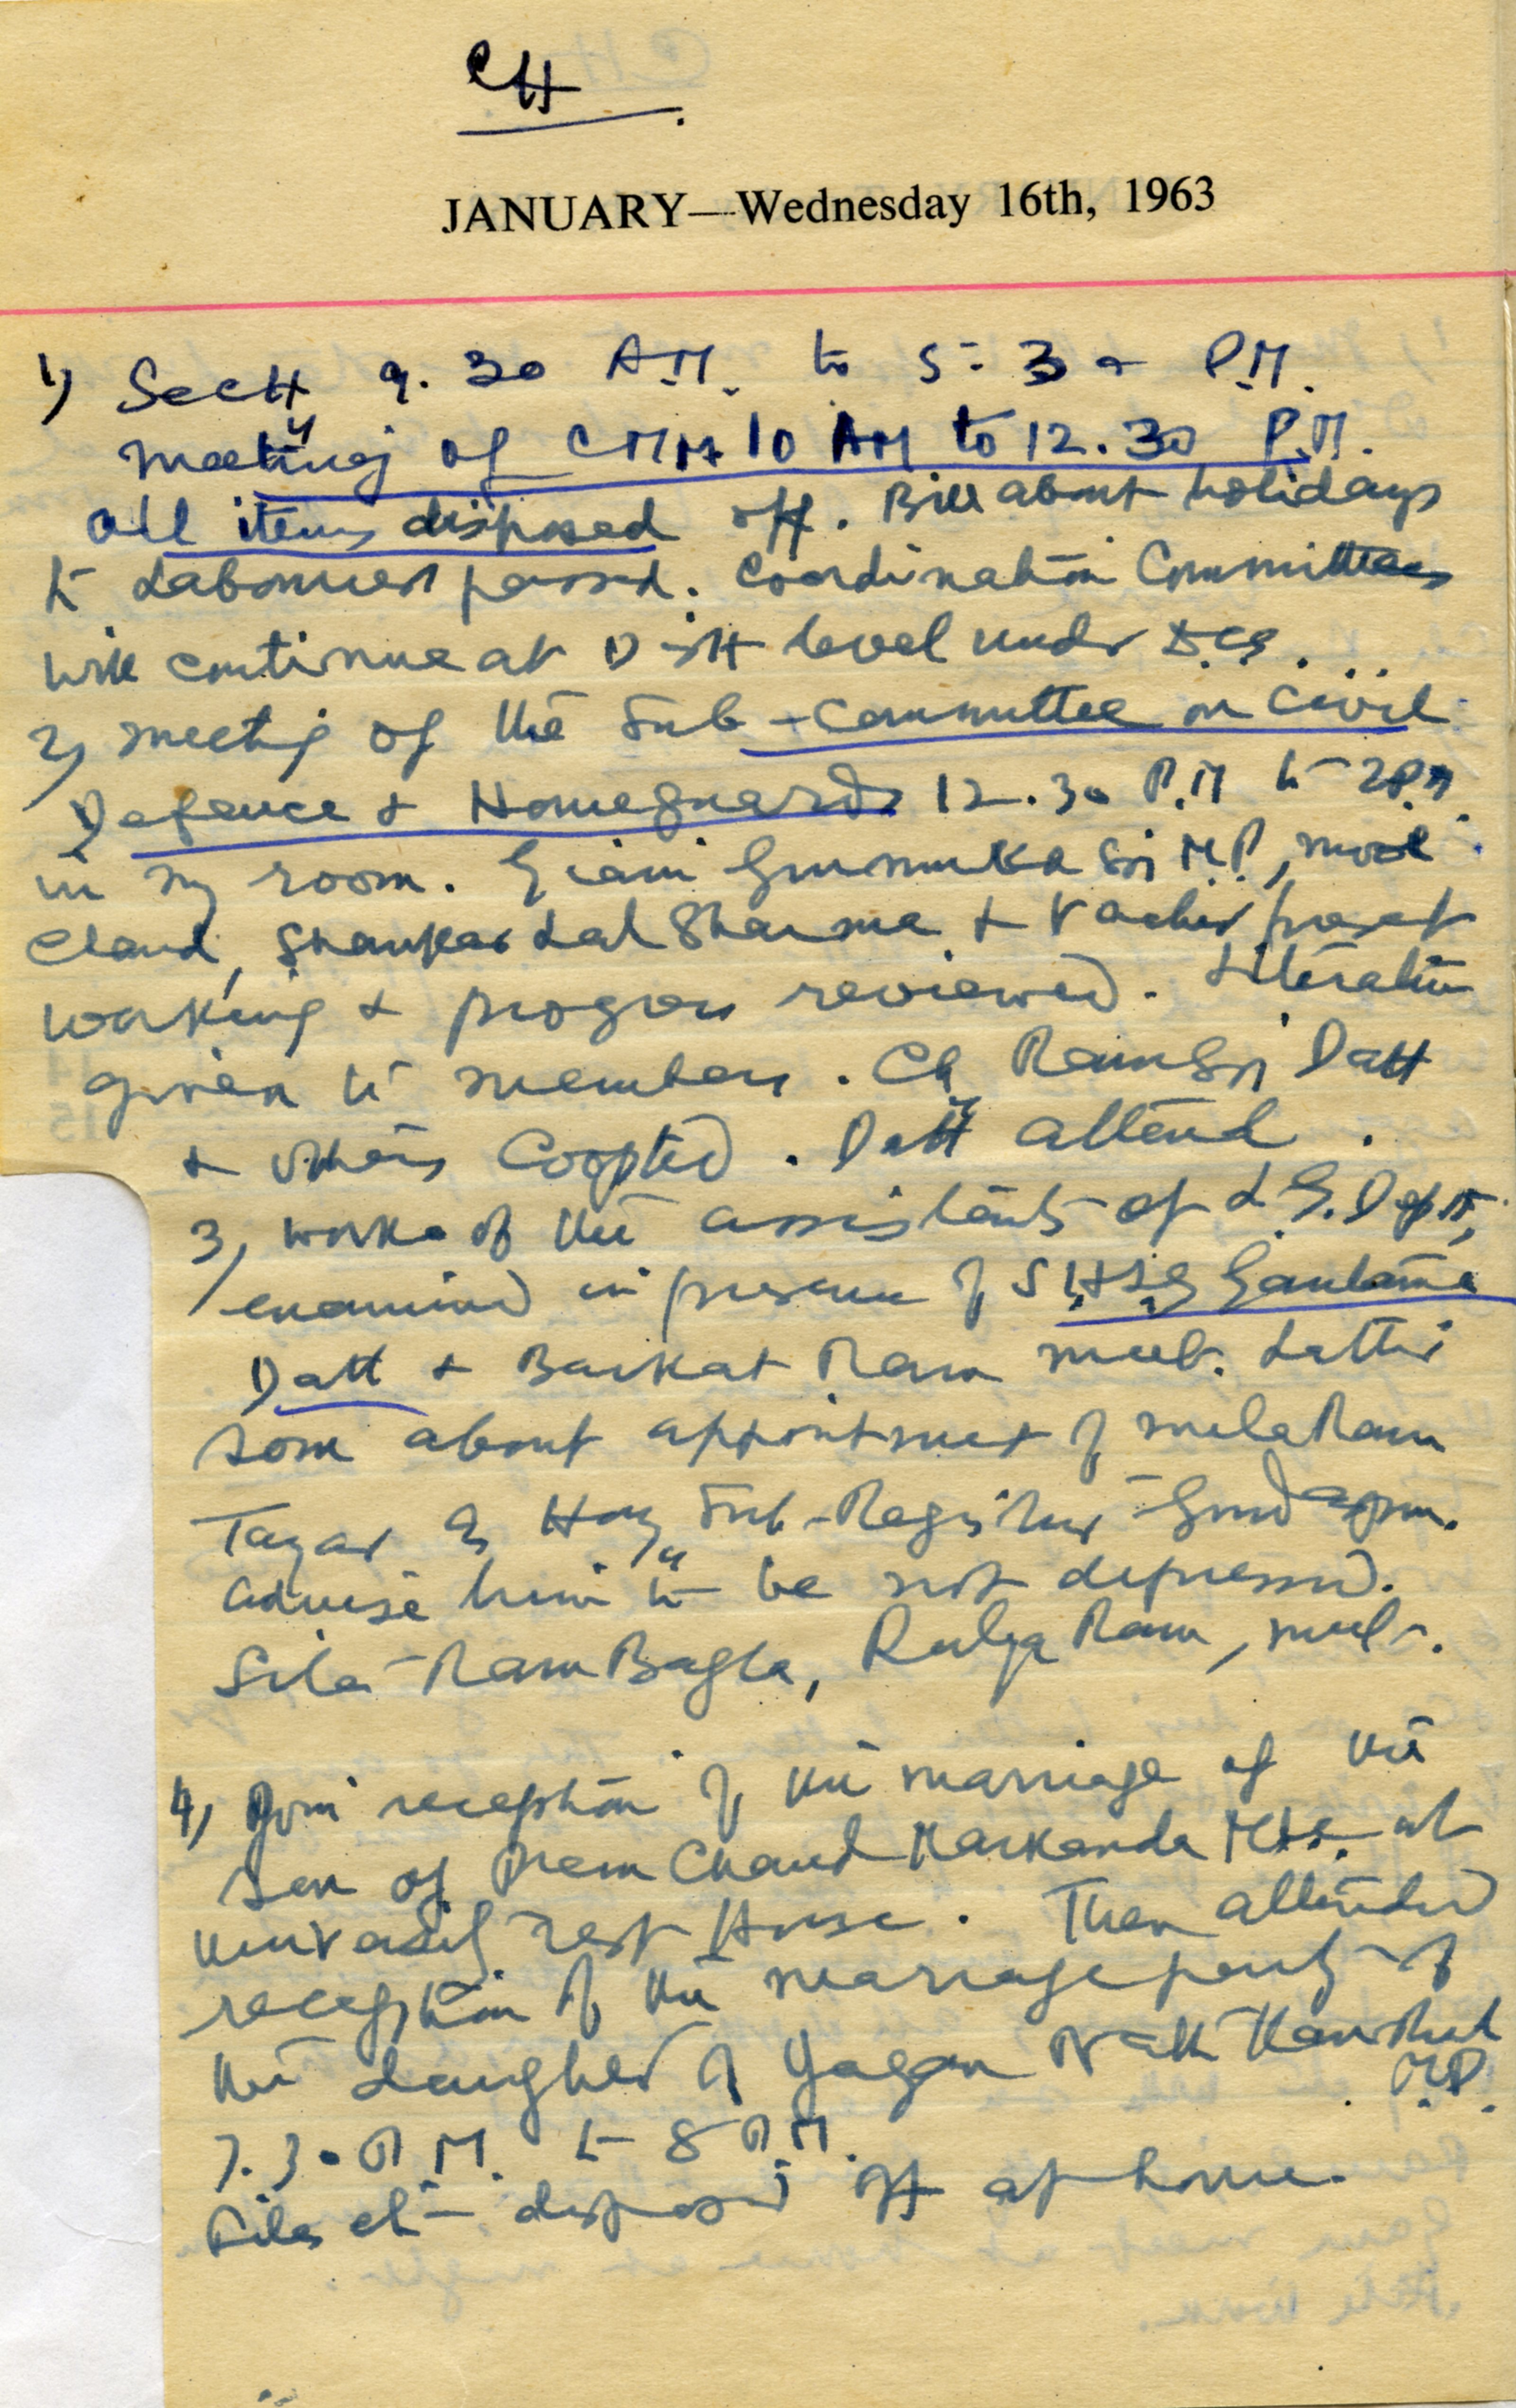 CH.
JANUARY—Wednesday 16th, 1963
1) Sectt 9.30 A.M. to 5=30 P.M.
Meeting of CMM 10 AM to 12.30 P.M.
All items disposed off. Bill about holidays
to Labourers passed. Coordination Committees
will continue at Distt level under D.Cs.
2) Meeting of the Sub-Committee on Civil
Defence & Homeguards 12.30 P.M to 2 P.M
in my room. Giani Gurmukh Singh M.P, Mool
Chand, Shankar Lal Sharma & present
working & progress reviewed. Literature
given to members. Ch Ram Datt
& others Coopted. Datt attend.
3) Work of the assistants of L.G. Deptt,
examined in presence of Gautama
Datt & Barkat Ram meet. Letter
about appointment of Mela Ram
Tayar as Hony Sub-Registrar
advise him to be not depressed.
Sita Ram Bagla, Ralya Ram, meet.
4) Join reception of the marriage of the
son of Prem Chand Markanda at
University rest House. Then attended
reception of the marriage party of
the daughter of Jagan Nath Kaushal
M.P.
7.30 P.M. to 8 P.M.
Files etc disposed off at home.